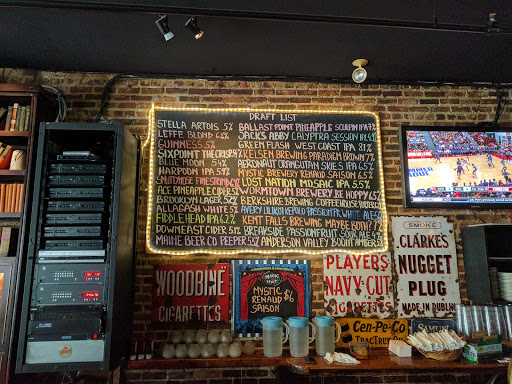 DRAFT LIST
STELLA ARTOIS 5%
LEFFE BLOND 6.6%
GUINNESS 5%
SIXPOINT THE CRISP 5.4%
BLUE MOON 5.4%
HARPOON IPA 5.9%
SMUTTYNOSE
ACE PINEAPPLE CIDER 5%
BROOKLYN LAGER 5.2%
ALLAGASH WHITE 5%
FIDDLEHEAD IPA 6.2%
DOWNEAST CIDER 5.1%
MAINE BEER CO PEEPER 5.5%
BALLAST POINT PINEAPPLE SCULPIN IPA 7%
JACK'S ABBY CALYPTRA SESSION
GREEN FLASH WEST COAST IPA 8.1%
KELSEN BREWING PARADIGM BROWN
ABROWAIT ORANGUTAN SKIES IPA 6.5%
MYSTIC BREWERY RENAUD SAISON
LOST NATION MOSAIC IPA 5.5%
WORMTOWN BREWERY BE HOPPY 6.5%
BERKSHIRE BREWING COFFEEHOUSE PORTER
AVERY LILIKOI KEPOLO PASSIONFR. WHITE ALE
KENT FALLS BREWING MAYBE BOTH?
BREAKSIDE PASSIONFRUIT SOUR ALE
ANDERSON VALLEY BOONT AMBER
WOODBINE
CIGARETTES
MYSTIC
RENAUD $6
SAISON
PLAYER'S
NAVY CUT
CIGARETTES
SMOKE
CLARKE'S
NUGGET
PLUG
MADE IN DUBLIN
Cen-Pe-Co
TRACTOR